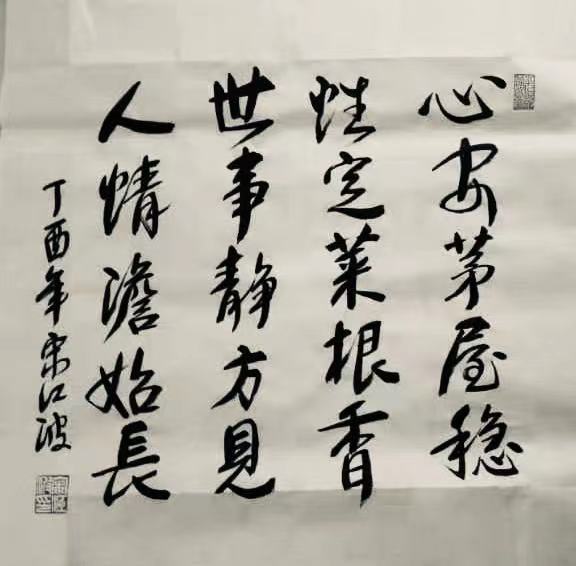 心安茅屋稳
性定菜根香
世事静方見
人情澹始長
丁酉年宋江波